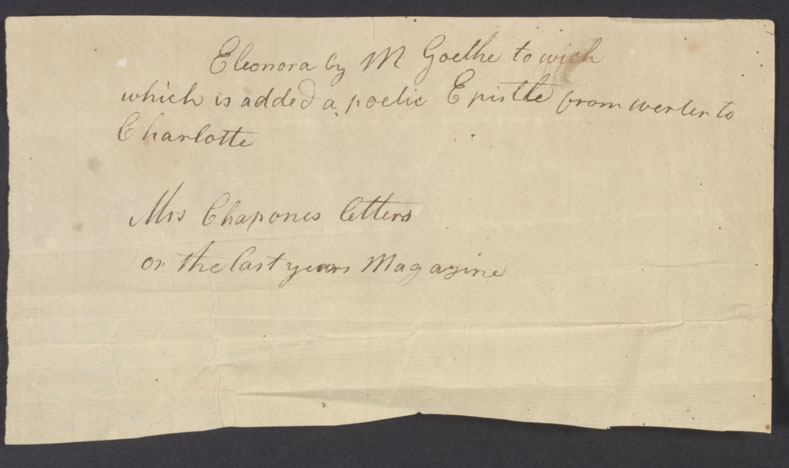 Eleonora by M Goethe to wich
which is added a poetic Epistle from werter to
Charlotte
Mrs Chapones letters
or the last years Magazine